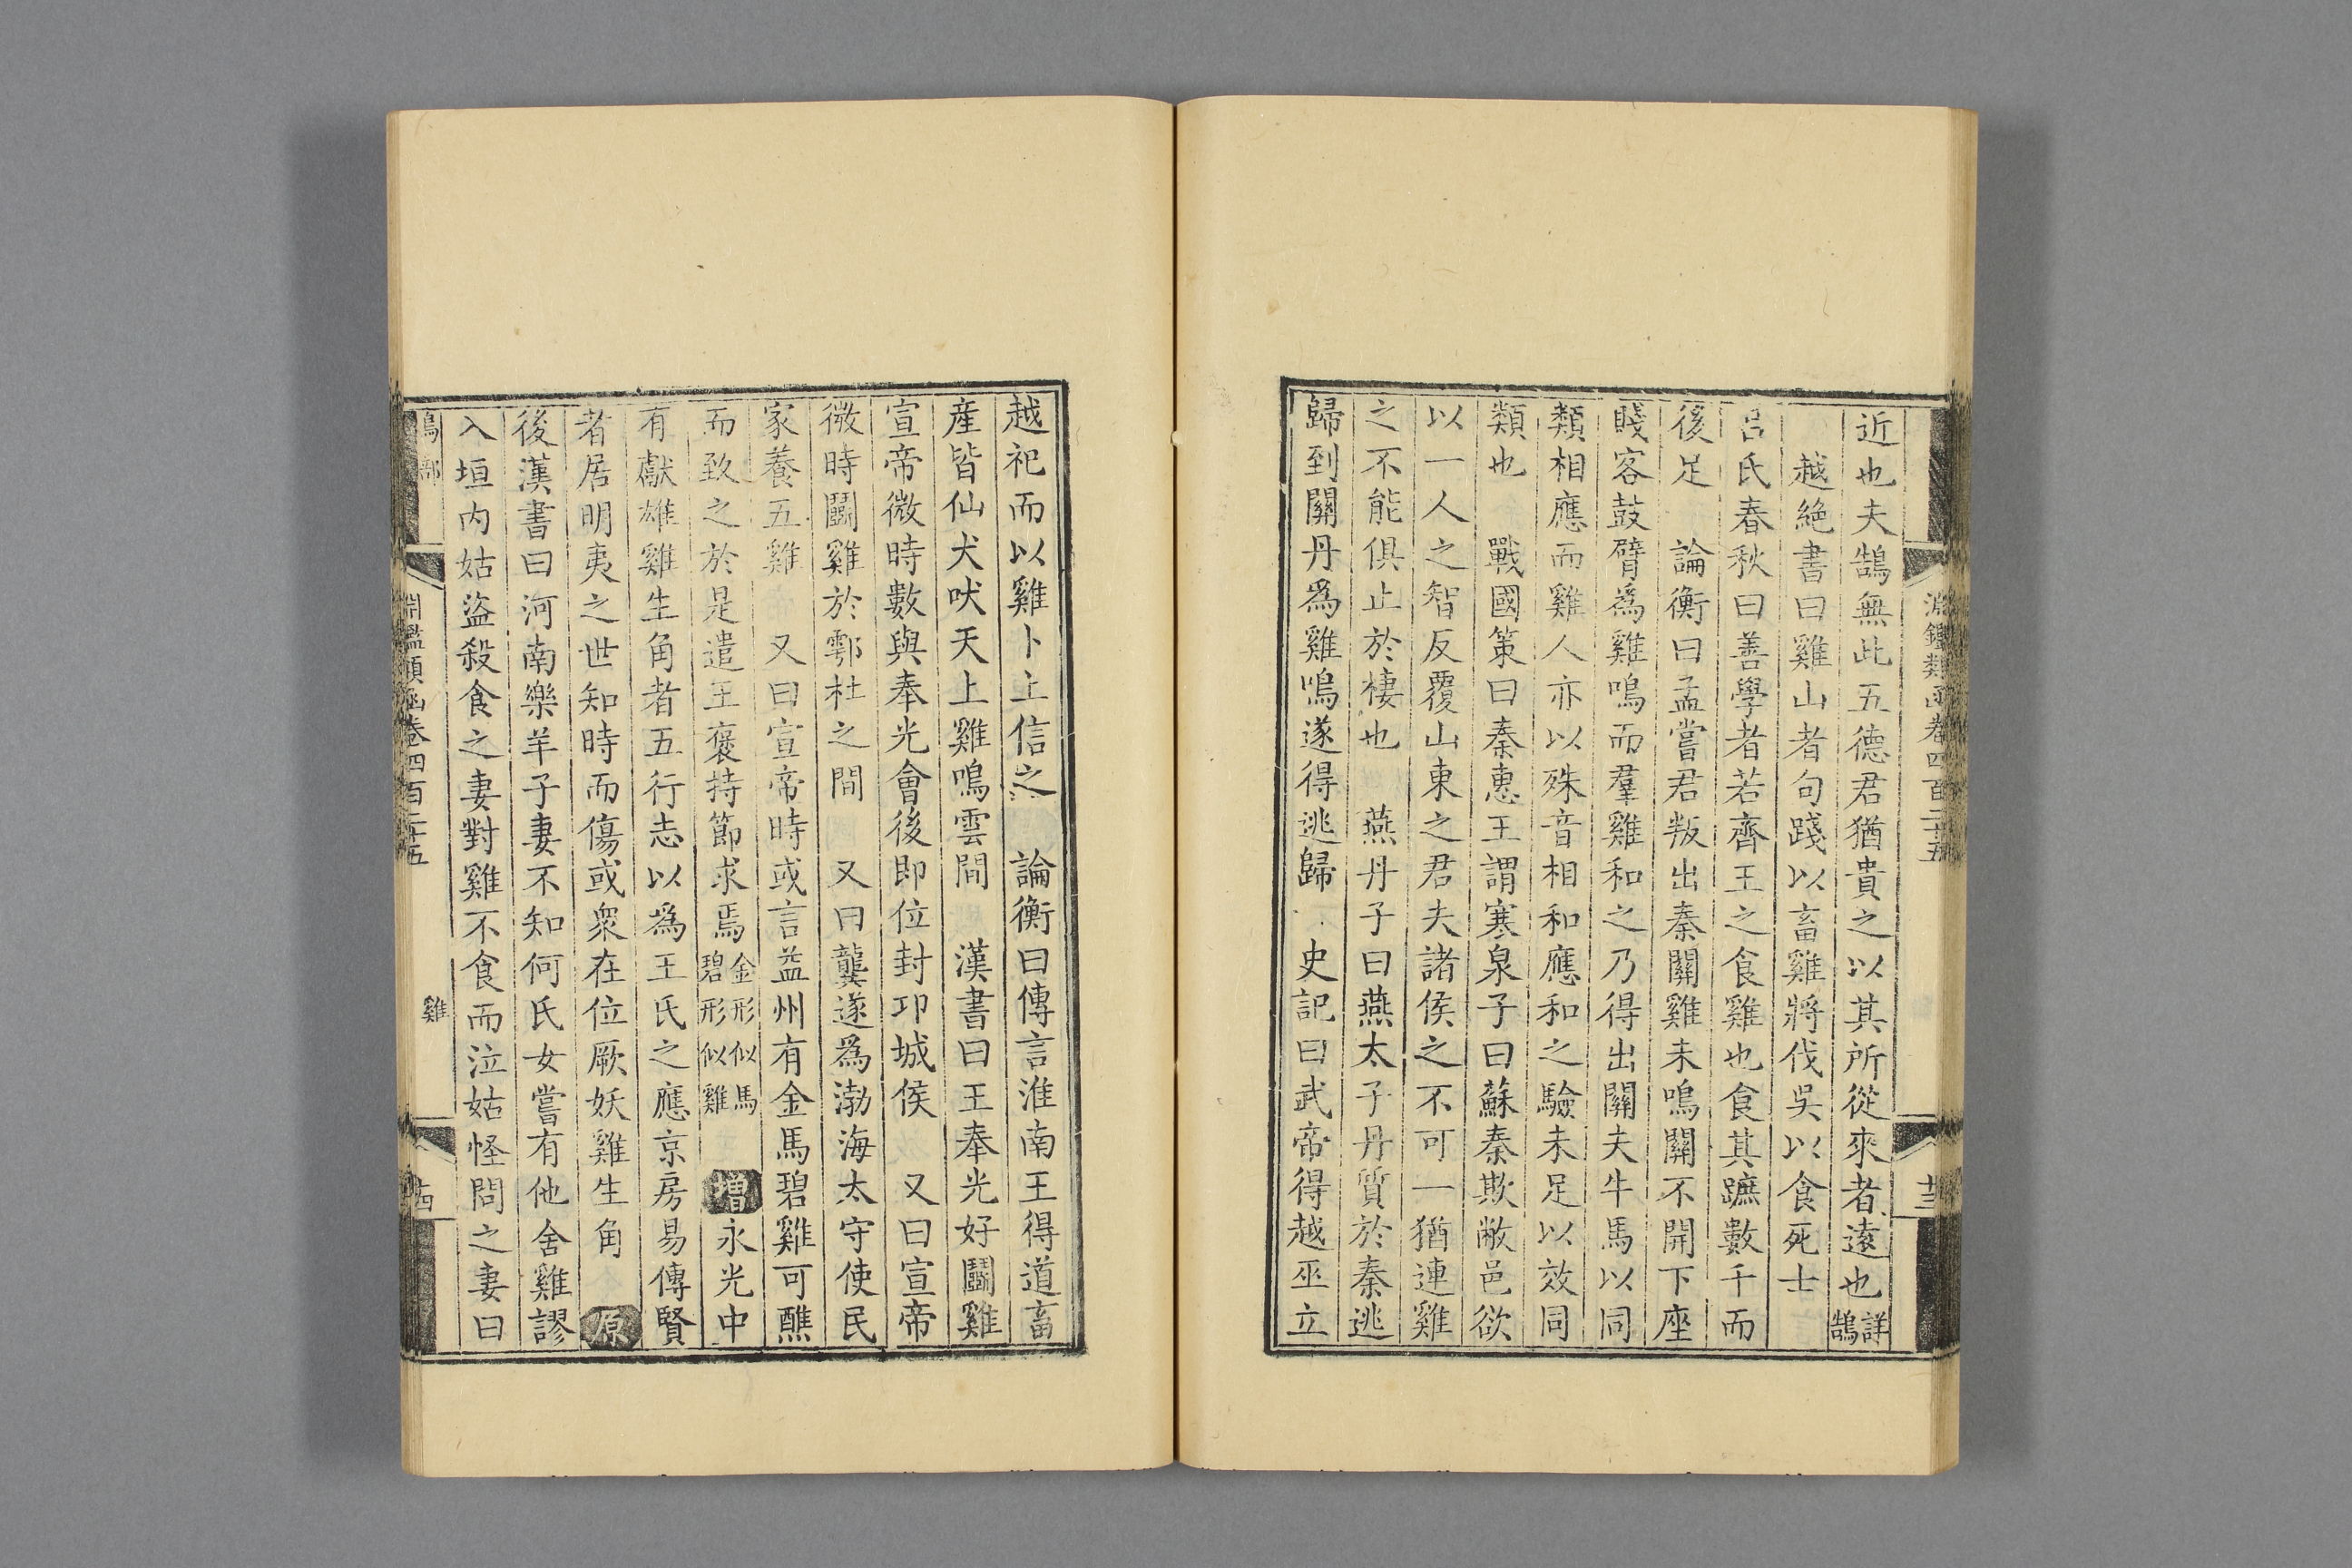 淵鑑類函卷四百二十五
十三
近也夫鵠無此五德君猶貴之以其所從來者遠也詳鵠
越絕書曰雞山者句踐以畜雞將伐吳以食死士
呂氏春秋曰善學者若齊王之食雞也食其蹠數千而
後足 論衡曰孟嘗君叛出秦關雞未鳴關不開下座
賤客鼓臂為雞鳴而羣雞和之乃得出關夫牛馬以同
類相應而雞人亦以殊音相和應和之驗未足以效同
類也 戰國策曰秦惠王謂寒泉子曰蘇秦欺敝邑欲
以一人之智反覆山東之君夫諸侯之不可一猶連雞
之不能俱止於棲也 燕丹子曰燕太子丹質於秦逃
歸到關丹為雞鳴遂得逃歸 史記曰武帝得越巫立
越祀而以雞卜上信之 論衡曰傳言淮南王得道畜
產皆仙犬吠天上雞鳴雲間 漢書曰王奉光好鬭雞
宣帝微時數與奉光會後即位封邛城侯 又曰宣帝
微時鬭雞於鄠杜之間 又曰龔遂為渤海太守使民
家養五雞 又曰宣帝時或言益州有金馬碧雞可醮
而致之於是遣王褒持節求焉金形似馬碧形似雞 增永光中
有獻雄雞生角者五行志以為王氏之應京房易傳賢
者居明夷之世知時而傷或衆在位厥妖雞生角 原
後漢書曰河南樂羊子妻不知何氏女嘗有他舍雞謬
入垣內姑盜殺食之妻對雞不食而泣姑怪問之妻曰
鳥部
淵鑑類函卷四百二十五
雞
十四